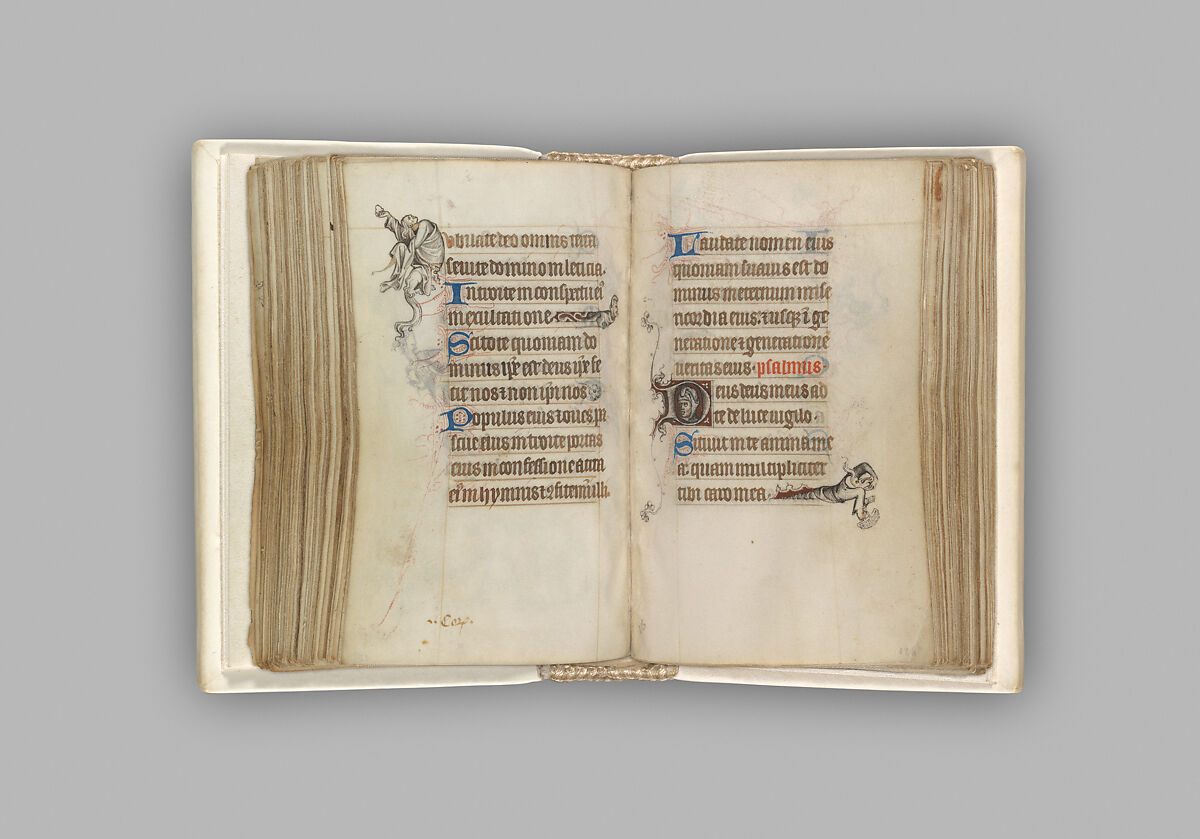 ubilate deo omnis terra
seruite domino in leticia.
Introite in conspectu eiꝰ
in exultatione
Scitote quoniam do
minus ip̅e est deus ip̅e fe
cit nos ⁊ non ip̅i nos
Populus eius ⁊ oues pa
scue eius introite portas
eius in confessione atria
eiꝰ in hymnis ⁊ ꝯfitem̅i illi.
.. Cor̅.
Laudate nomen eius
quoniam suauis est do
minus in eternum mise
ricordia eius. ⁊ usqꝫ ī ge
neratione ⁊ generatione̅
ueritas eius. psalmus
Deus deus meus ad
te de luce uigilo.
Sitiuit in te anima me
a. quam multipliciter
tibi caro mea.